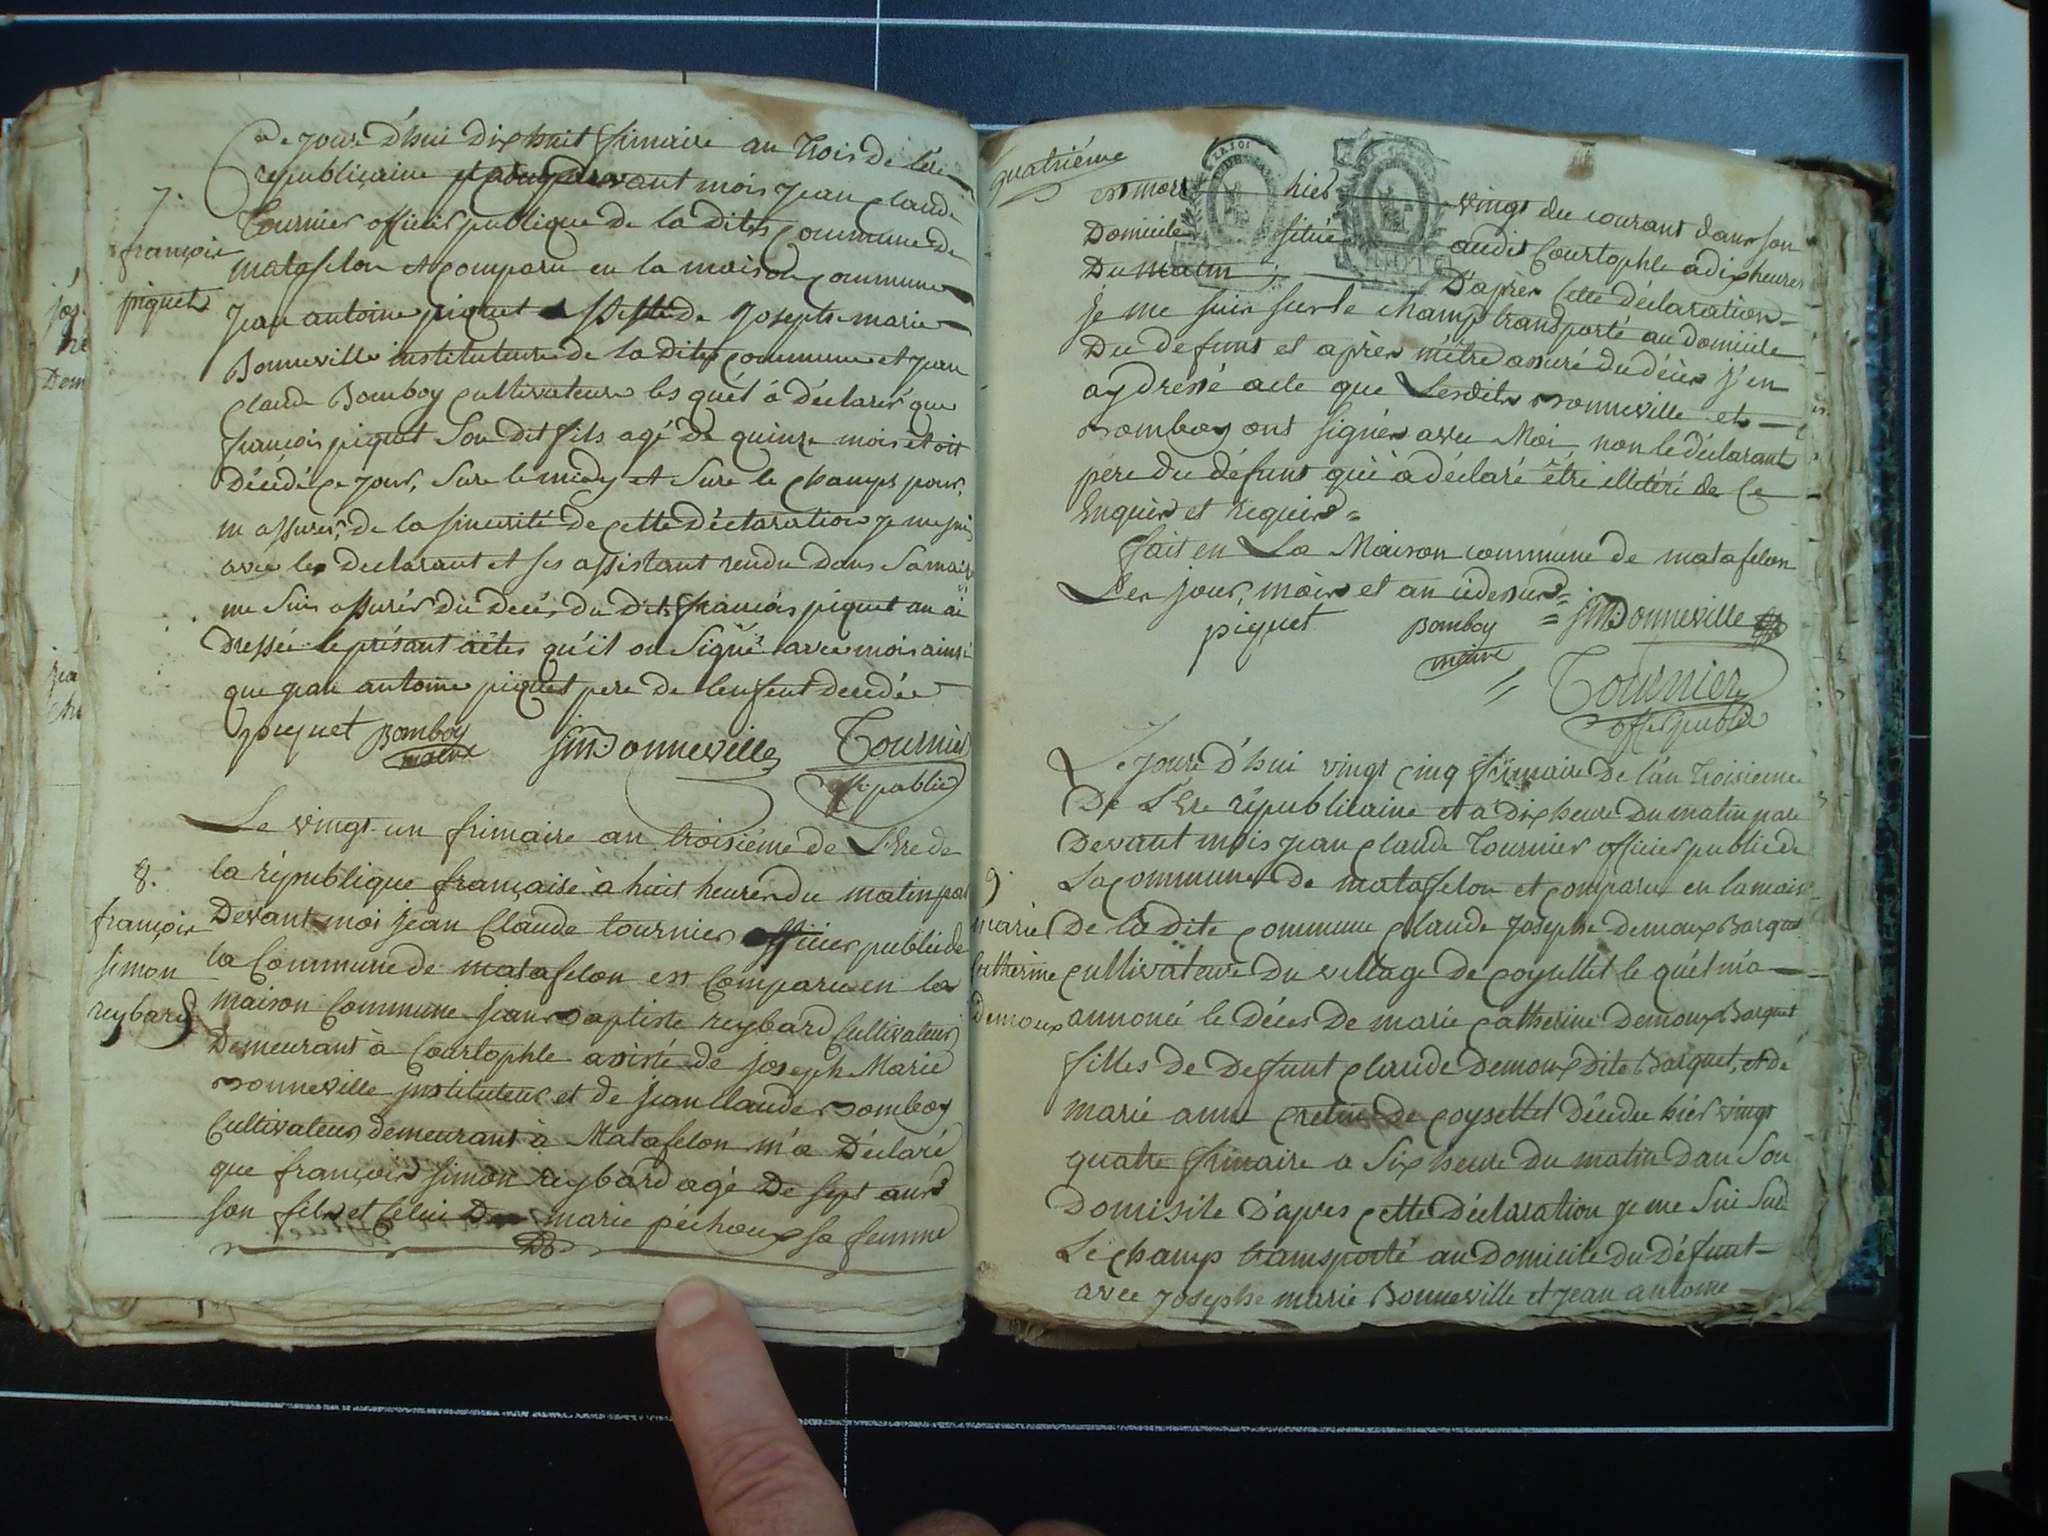 Ce jour d'hui dix huit frimaire an trois de l'ére
republiçaine et par devant mois jean claude
7.
Tournier officier publique de la dites commune de
françois
matafelon et comparu en la maison commune
piquet
jean antoine piquet assisté de Josepts marie
Bonneville instituteur de la dites commune et jean
claude Bomboy cultivateur les quél à déclarér que
françois piquet son dit fils agé de quinze mois etoit
décédé ce jour, sure le midy et sure le champs pour,
m assurér, de la sincerité de cette déclaration je me suis
avec les declarant et ses assistant rendu dans sa mais
me suis assurér du decés du dit françois piquet an ai
dressée le présant actes qu'il on signé avec mois ainsi
que jean antoine piquet pere de lenfent decedée
piquet Bomboy JMBonneville Tournier
maire off. public
Le vingt un frimaire an troisiéme de L'Ere de
8.
la république française à huit heures du matin par
Devant moi jean Claude tournier officier public de
françois
simon
reybard
la Commune de matafelon est Comparu en la
maison Commune jean Baptiste reybard Cultivateur
Demeurant à Courtophle assisté de joseph Marie
Bonneville instituteur et de jean Claude Bomboy
Cultivateur demeurant à Matafelon m'a Déclaré
que françois simon reybard agé De sept ans
son fils et celui De marie péchoux sa femme
quatriéme
est mort hier vingt du courant dans son
Domicile situé audit Courtophle a dix heures
Du matin; D'aprés Cette déclaration
je me suis sur le champ transporté au domicile
Du defunt et aprés m'étre assuré du décés j'en
ay dressé acte que Lesdits Bonneville et
Bomboy ont signés avec Moi, non le déclarant
pere du défunt qui à déclaré étre illetéré de ce
Enquis et requis =
fait en La Maison commune de matafelon
Les jour, mois et an cidessus =
piquet Bomboy = JMBonneville
maire Tournier
off. public
Le jour d'hui vingt cinq frimaire de l'an troisieme
De L'Ere républicaine et a dix heure du matin pare
Devant mois jean claude Tournier officier public de
9.
La commune de matafelon et comparu en la mais
marie
De la dite commune claude Josephe demoux Barquet
Catherine
cultivateure du village de coysellet le quél m'a
demoux
annoncé le déces de marie catherine demoux Barquet
filles de defunt claude demoux dite Barquet, et dé
marie anne de coysellet décédée hiér vingt
quatre frimaire a six heure du matin dan son
Domisile D'apres cette Déclaration je me sui sur
Le champ transporté au Domicile du Défunt
avec josephe marie Bonneville et jean antoine